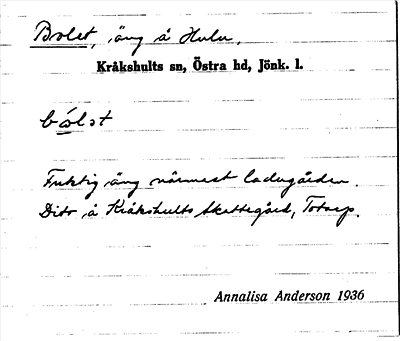 Bolet, äng å Hulu,
Kråkshults sn, Östra hd, Jönk. l.
bólət
Fuktig äng närmast ladugården.
Dito å Kråkshults Skattegård, Totarp.
Annalisa Anderson 1936